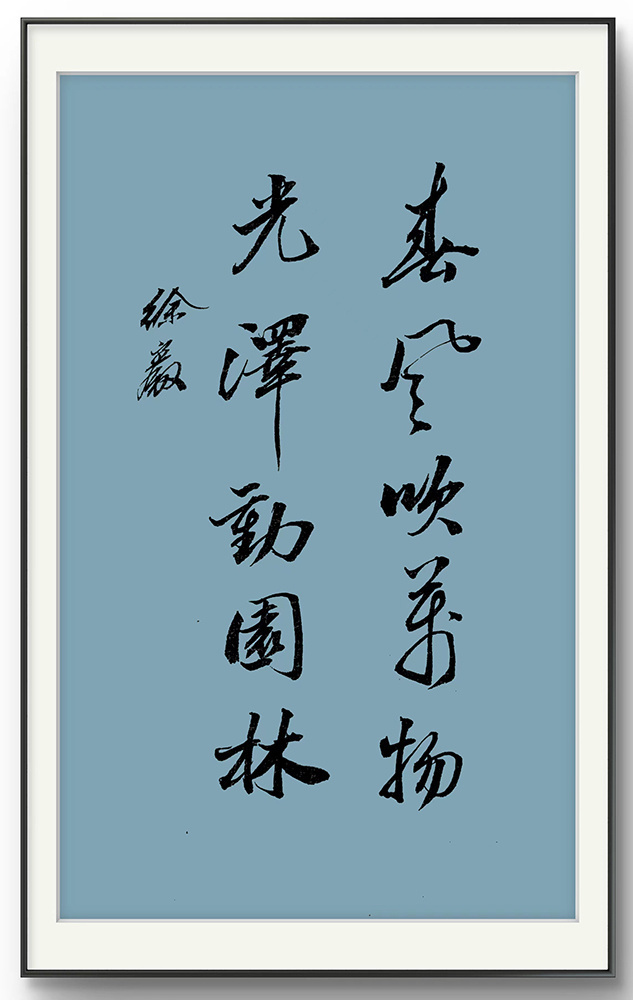 春风吹萬物
光澤動園林
徐巖